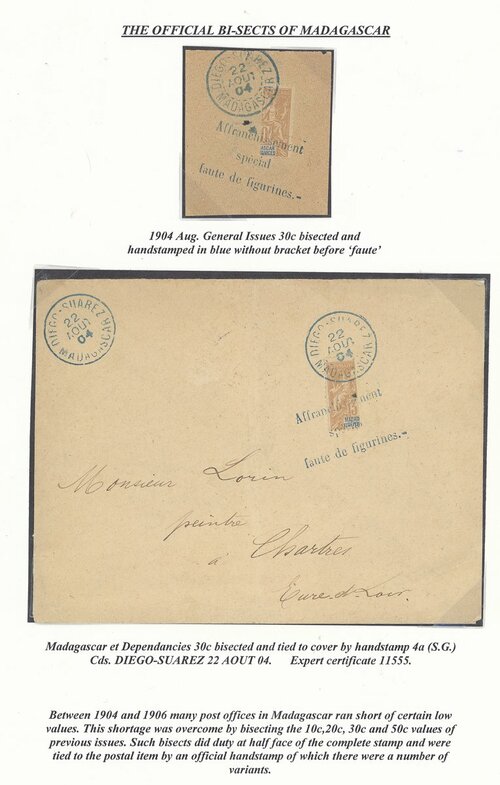 THE OFFICIAL BI-SECTS OF MADAGASCAR
DIEGO-SUAREZ
22
AOUT
04
MADAGASCAR
Affranchissement
spécial
faute de figurines.-
1904 Aug. General Issues 30c bisected and
handstamped in blue without bracket before 'faute'
DIEGO-SUAREZ
22
AOUT
04
MADAGASCAR
DIEGO-SUAREZ
22
AOUT
04
MADAGASCAR
Affranchissement
spécial
faute de figurines.-
Monsieur Lorin
peintre
à Chartres
Eure-et-Loir.
Madagascar et Dependancies 30c bisected and tied to cover by handstamp 4a (S.G.)
Cds. DIEGO-SUAREZ 22 AOUT 04. Expert certificate 11555.
Between 1904 and 1906 many post offices in Madagascar ran short of certain low
values. This shortage was overcome by bisecting the 10c,20c, 30c and 50c values of
previous issues. Such bisects did duty at half face of the complete stamp and were
tied to the postal item by an official handstamp of which there were a number of
variants.